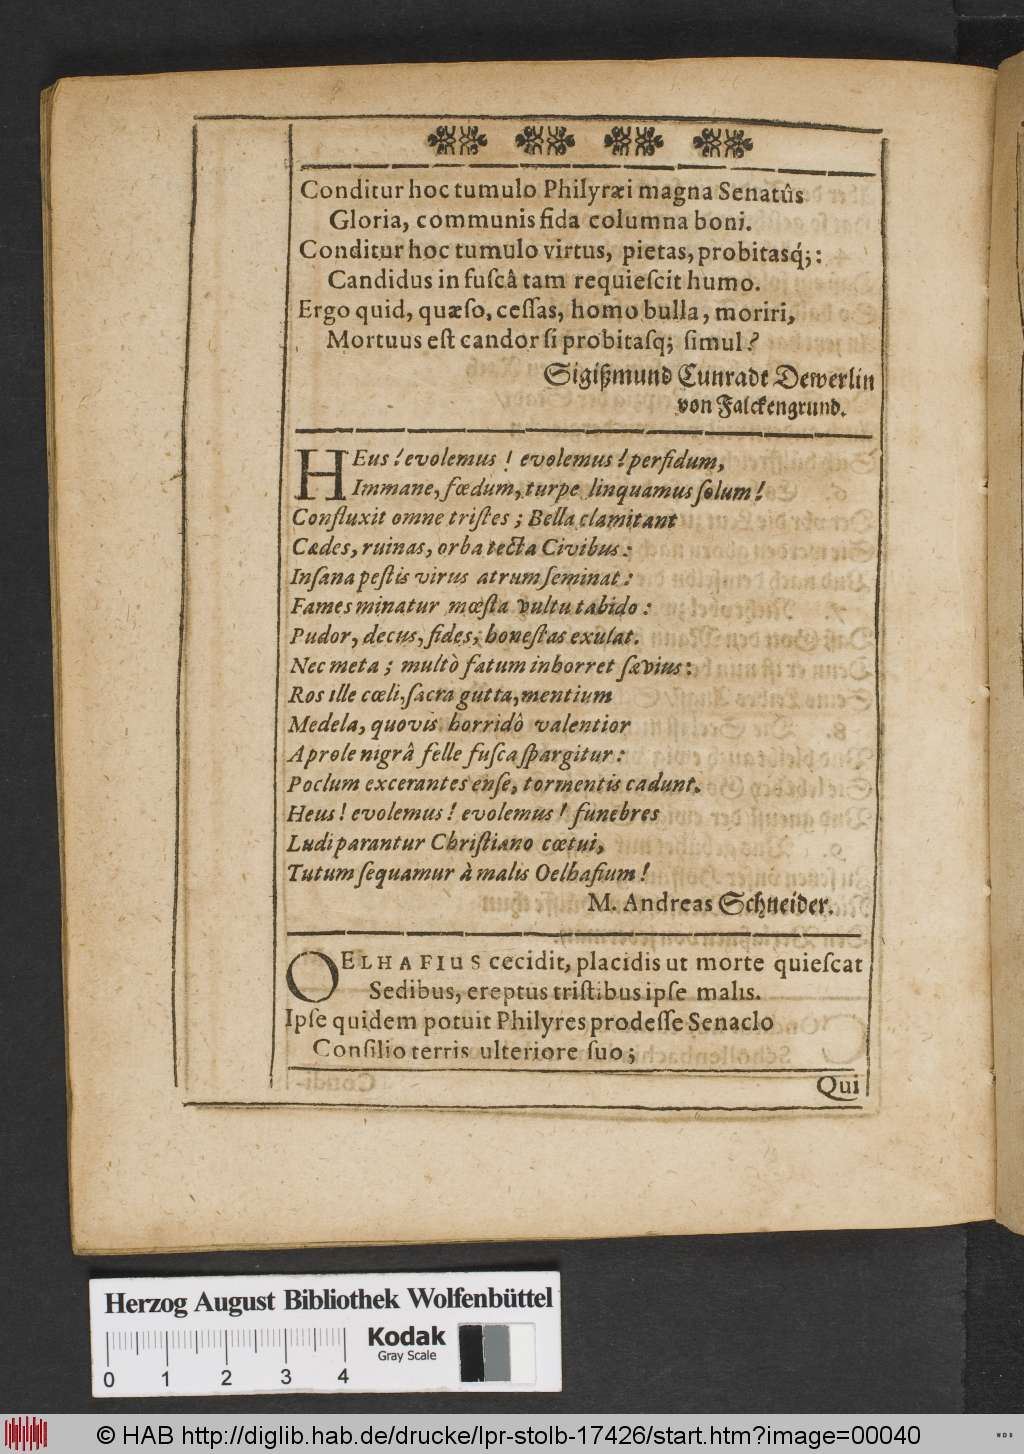 Conditur hoc tumulo Philyræi magna Senatûs
Gloria, communis fida columna boni.
Conditur hoc tumulo virtus, pietas, probitasq́;:
Candidus in fuſcâ tam requieſcit humo.
Ergo quid, quæſo, ceſſas, homo bulla, moriri,
Mortuus eſt candor ſi probitaſq; ſimul?
Sigißmund Cunradt Dewerlin
von Falckengrund.
HEus! evolemus! evolemus! perfidum,
Immane, fœdum, turpe linquamus ſolum!
Confluxit omne triſtes; Bella clamitant
Cædes, ruinas, orba tecta Civibus:
Inſana peſtis virus atrum ſeminat:
Fames minatur mœſta vultu tabido:
Pudor, decus, fides, honeſtas exulat.
Nec meta; multò fatum inhorret ſævius:
Ros ille cœli, ſacra gutta, mentium
Medela, quovis horridô valentior
A prole nigrâ felle fuſca ſpargitur:
Poclum excerantes enſe, tormentis cadunt.
Heus! evolemus! evolemus! funebres
Ludi parantur Chriſtiano cœtui,
Tutum ſequamur à malis Oelhafium!
M. Andreas Schneider.
OELHAFIUS cecidit, placidis ut morte quieſcat
Sedibus, ereptus triſtibus ipſe malis.
Ipſe quidem potuit Philyres prodeſſe Senaclo
Conſilio terris ulteriore ſuo;
Qui
Herzog August Bibliothek Wolfenbüttel
Kodak
Gray Scale
0 1 2 3 4
© HAB http://diglib.hab.de/drucke/lpr-stolb-17426/start.htm?image=00040